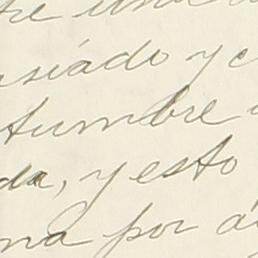 siado y c
tumbre
da, y esto
na por a